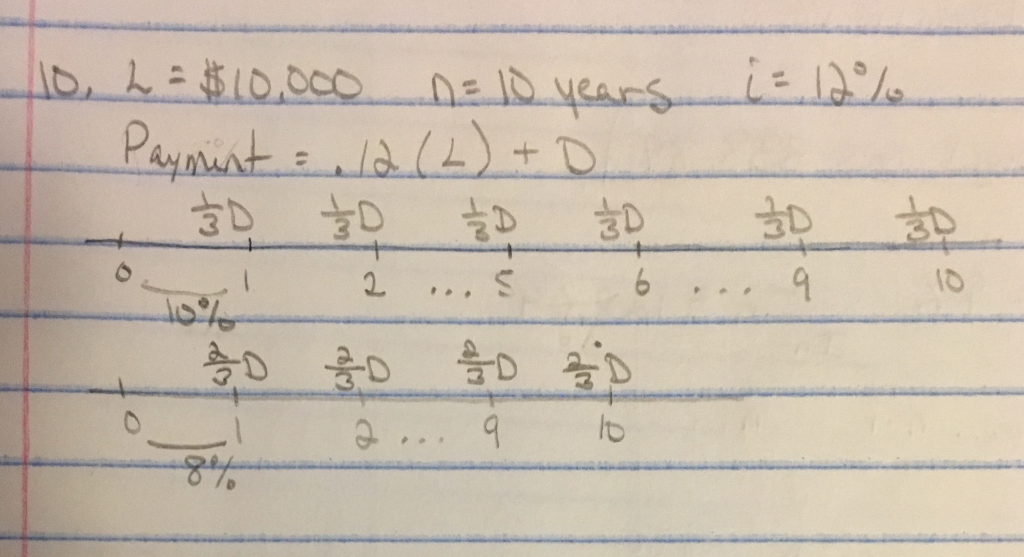 10. L = $10,000 n = 10 years i = 12%
Paymint = .12 (L) + D
1/3 D 1/3 D 1/3 D 1/3 D 1/3 D 1/3 D
0 1 2 ... 5 6 ... 9 10
10%
2/3 D 2/3 D 2/3 D 2/3 D
0 1 2 ... 9 10
8%